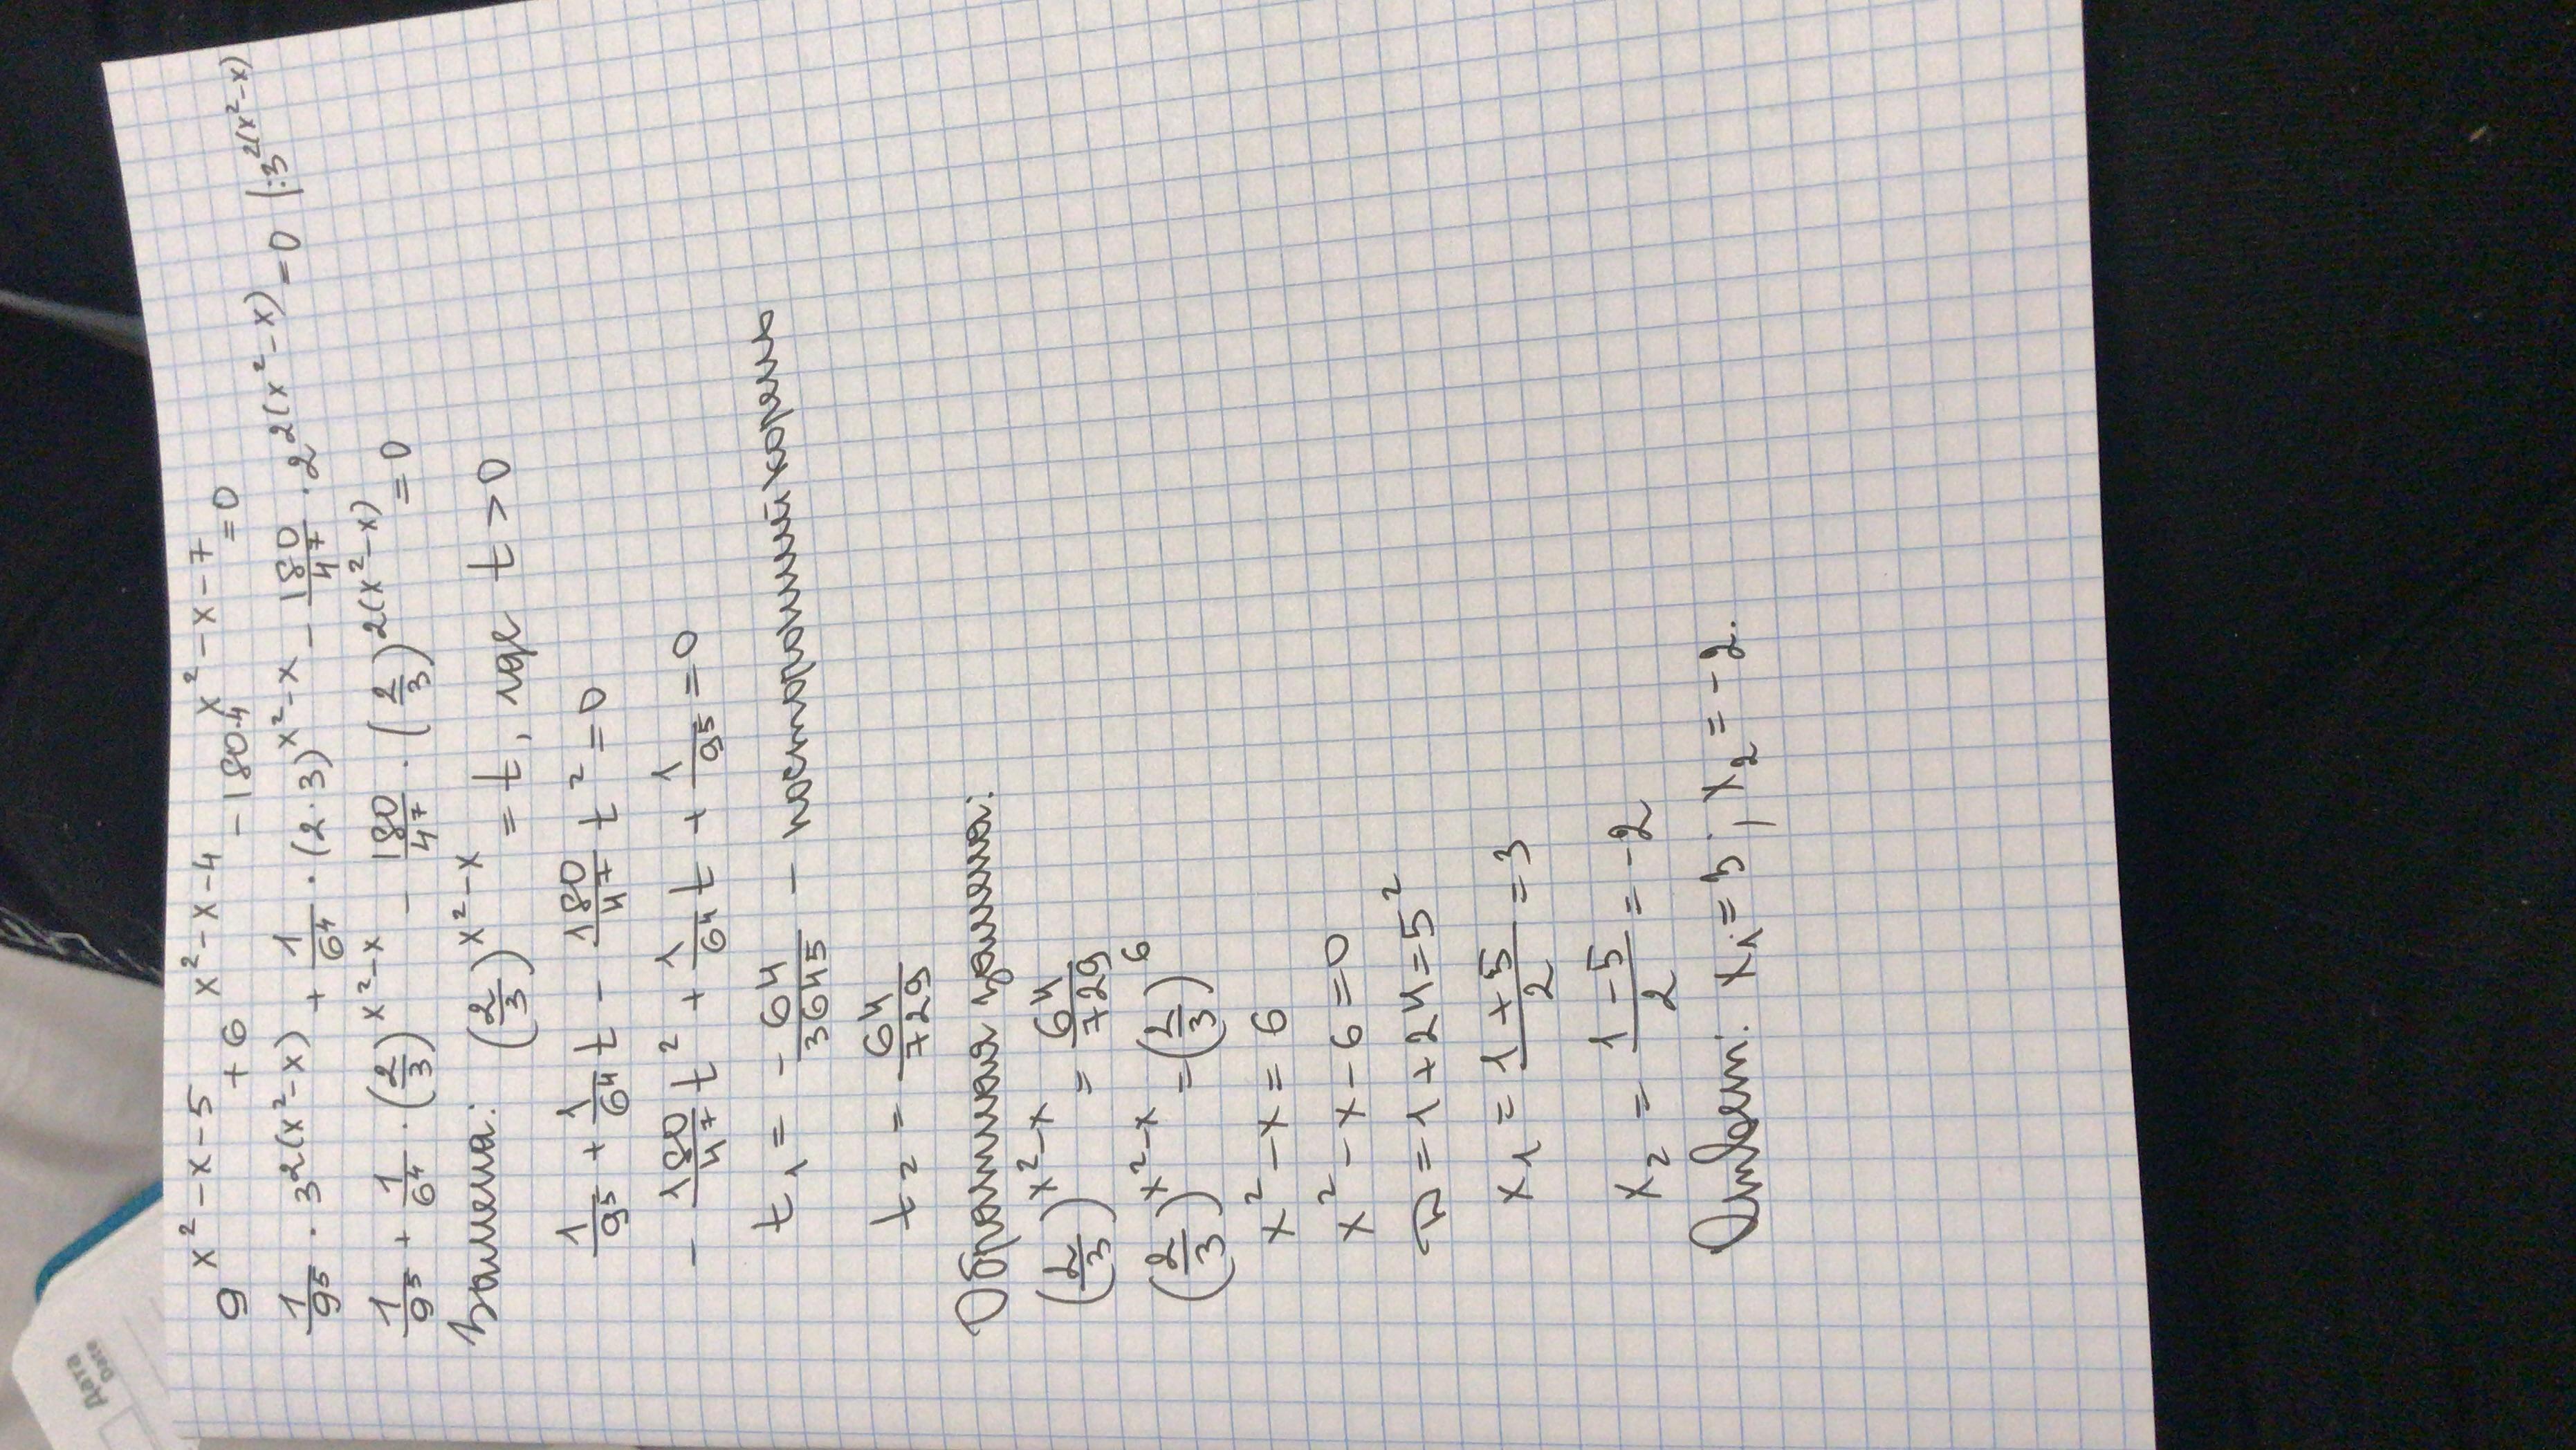 9^{x²-x-5} + 6^{x²-x-4} - 180·4^{x²-x-7} = 0
1/9⁵ · 3^{2(x²-x)} + 1/6⁴ · (2·3)^{x²-x} - 180/4⁷ · 2^{2(x²-x)} = 0 |:3^{2(x²-x)}
1/9⁵ + 1/6⁴ · (2/3)^{x²-x} - 180/4⁷ · (2/3)^{2(x²-x)} = 0
Замена: (2/3)^{x²-x} = t, где t > 0
1/9⁵ + 1/6⁴ t - 180/4⁷ t² = 0
- 180/4⁷ t² + 1/6⁴ t + 1/9⁵ = 0
t₁ = - 64/3645 - посторонний корень
t₂ = 64/729
Обратная замена:
(2/3)^{x²-x} = 64/729
(2/3)^{x²-x} = (2/3)⁶
x² - x = 6
x² - x - 6 = 0
D = 1 + 24 = 5²
x₁ = (1+5)/2 = 3
x₂ = (1-5)/2 = -2
Ответ: x₁ = 3; x₂ = -2.
Дата
Date